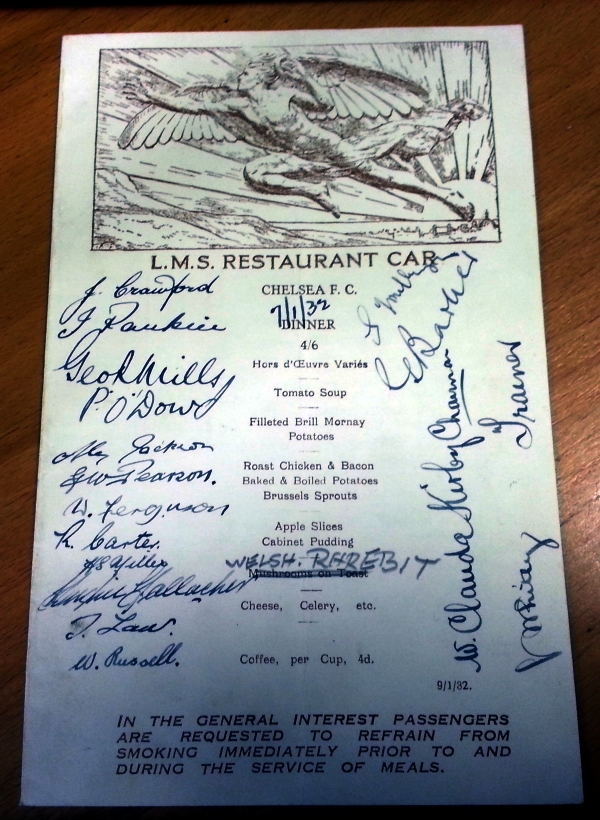 L.M.S. RESTAURANT CAR
CHELSEA F. C.
9/1/32
DINNER
4/6
Hors d'Œuvre Variés
Tomato Soup
Filleted Brill Mornay
Potatoes
Roast Chicken & Bacon
Baked & Boiled Potatoes
Brussels Sprouts
Apple Slices
Cabinet Pudding
WELSH. RAREBIT
Mushrooms on Toast
Cheese, Celery, etc.
Coffee, per Cup, 4d.
9/1/32.
IN THE GENERAL INTEREST PASSENGERS
ARE REQUESTED TO REFRAIN FROM
SMOKING IMMEDIATELY PRIOR TO AND
DURING THE SERVICE OF MEALS.
J. Crawford
J Rankin
Geo R Mills
P. O'Dowd
Alex Jackson
S W Pearson.
W. Ferguson
R. Carter.
H S Miller
Hughie Gallacher
T. Law.
W. Russell.
Barber
W. Claude Kirby Chairman
J Whitley
Trainer